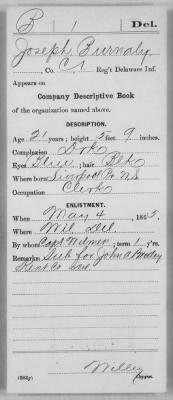 B | 1 | Del.
Joseph Burnaby
, Co. C, 1 Reg't Delaware Inf.
Appears on
Company Descriptive Book
of the organization named above.
DESCRIPTION.
Age 21 years; height 5 feet 9 inches.
Complexion Drk
Eyes Blue; hair Blk
Where born Liverpool
Occupation Clerk
ENLISTMENT.
When May 4, 1865.
Where Wil. Del.
By whom Capt Wilmer; term 1 y'rs.
Remarks: Sub for John A
Kent Co
Willey
Copyist.